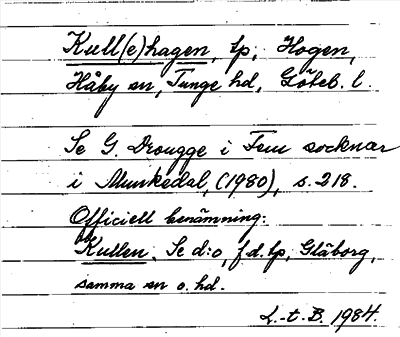 Kull(e)hagen, tp, Hogen,
Håby sn, Tunge hd, Göteb. l.
Se G. Drougge i Fem socknar
i Munkedal, (1980), s. 218.
Officiell benämning:
Kullen. Se d:o, f.d. tp, Glåborg,
samma sn o. hd.
L.-t. B. 1984.